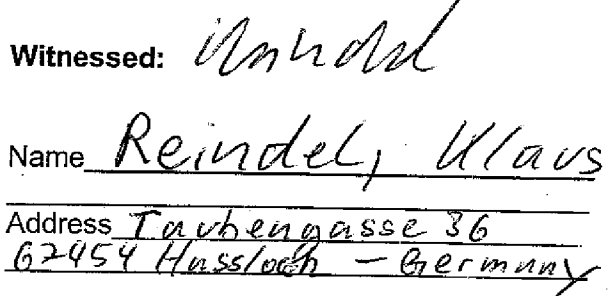 Witnessed:
Name Reindel, Klaus
Address Taubengasse 36
67454 Hassloch - Germany